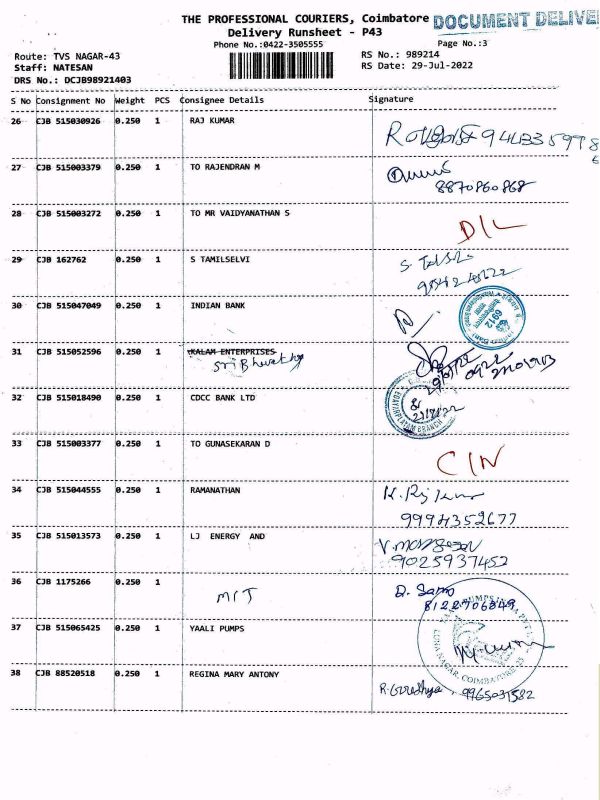 THE PROFESSIONAL COURIERS, Coimbatore DOCUMENT DELIVE
Delivery Runsheet - P43
Phone No.:0422-3505555 Page No.:3
Route: TVS NAGAR-43 RS No.: 989214
Staff: NATESAN RS Date: 29-Jul-2022
DRS No.: DCJB98921403
S No Consignment No Weight PCS Consignee Details Signature
26 CJB 515030926 0.250 1 RAJ KUMAR
27 CJB 515003379 0.250 1 TO RAJENDRAN M
8870860868
28 CJB 515003272 0.250 1 TO MR VAIDYANATHAN S
D/L
29 CJB 162762 0.250 1 S TAMILSELVI
30 CJB 515047049 0.250 1 INDIAN BANK
6912
31 CJB 515052596 0.250 1 KALAM ENTERPRISES
32 CJB 515018490 0.250 1 CDCC BANK LTD
BRANCH
33 CJB 515003377 0.250 1 TO GUNASEKARAN D
C/N
34 CJB 515044555 0.250 1 RAMANATHAN
9994352677
35 CJB 515013573 0.250 1 LJ ENERGY AND
9025937452
36 CJB 1175266 0.250 1
MIT
8122706849
37 CJB 515065425 0.250 1 YAALI PUMPS
NAGAR, COIMBATORE
38 CJB 88520518 0.250 1 REGINA MARY ANTONY
9965031582